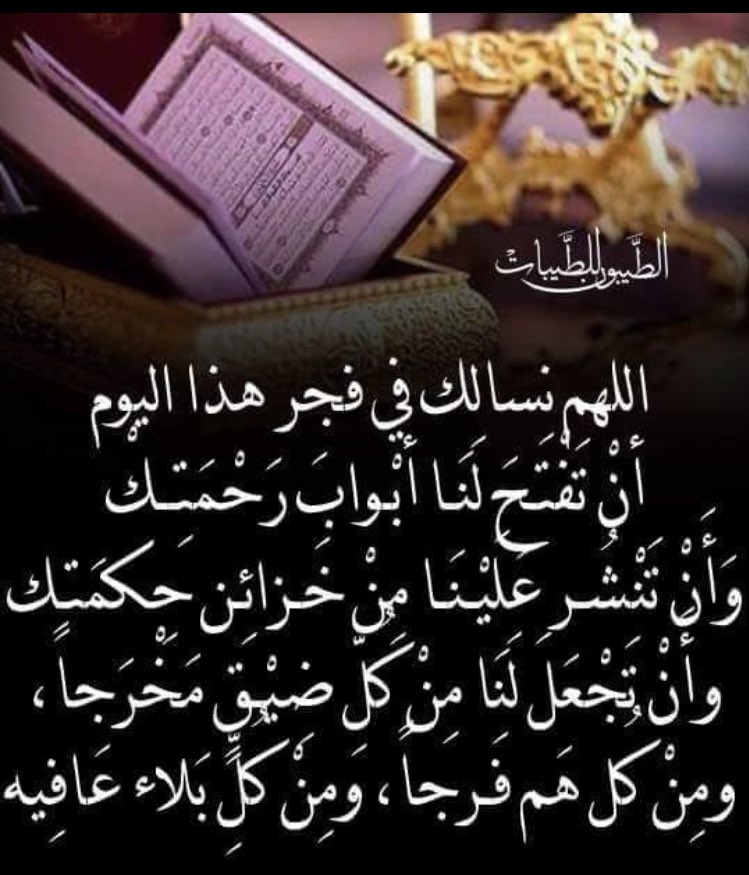 الطَّيبون للطَّيبات
اللهم نسالك في فجر هذا اليوم
أنْ تَفْتَحَ لَنَا أبْوابَ رَحْمَتِكْ
وَأَنْ تَنْشُرِ عَلَيْنَا مِنْ خَزائِن حِكمَتِك
وأَنْ تَجْعَلَ لَنَا مِنْ كُلِّ ضِيْقٍ مَخْرَجاً ،
ومِنْ كُل هَم فَرجاً ، وَمِنْ كُلِّ بَلاء عَافِيه